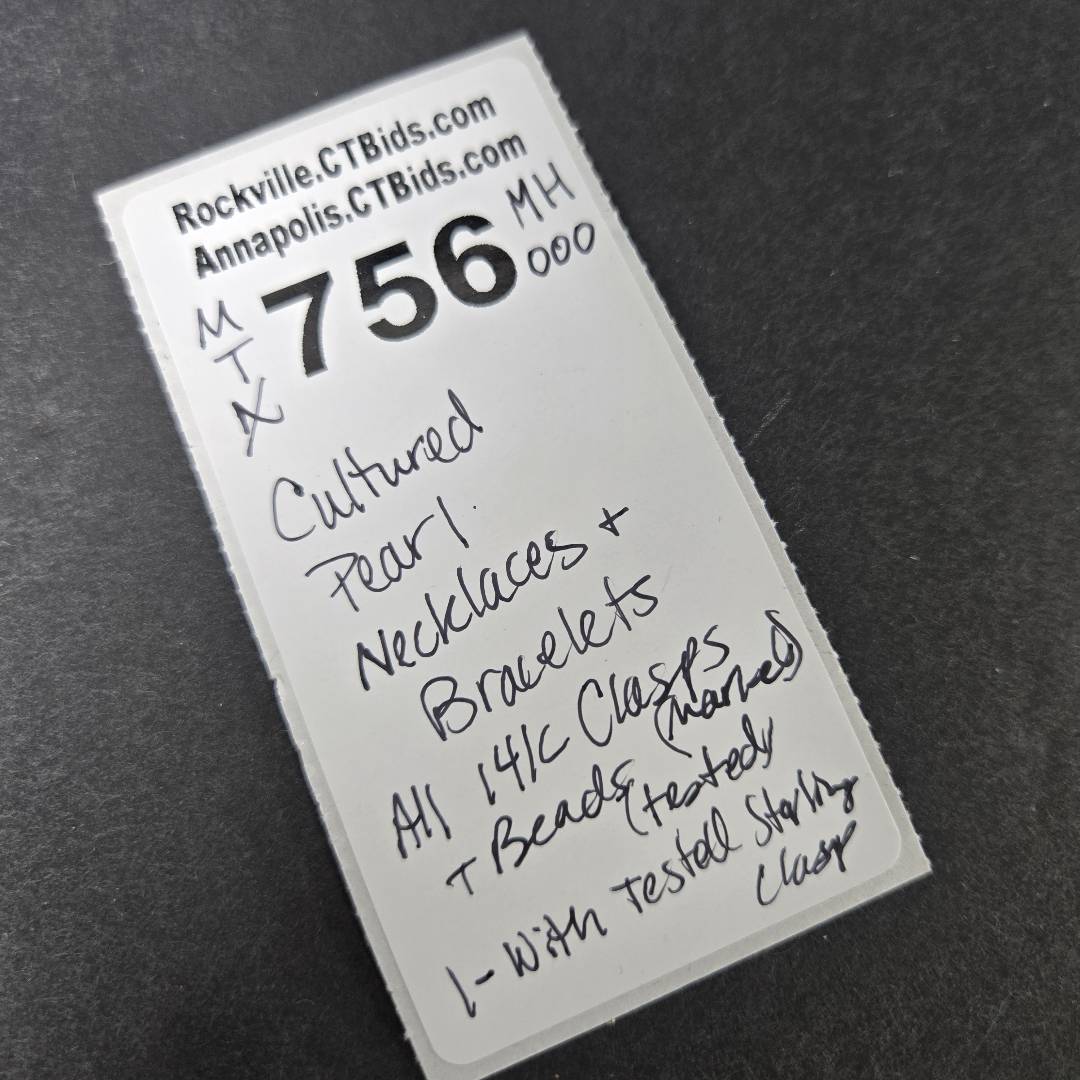 Rockville.CTBids.com
Annapolis.CTBids.com
756
MH
000
M
T
X
Cultured
Pearl
Necklaces +
Bracelets
All 14K Clasps (marked)
+ Beads (tested)
1- With Tested Sterling
Clasp